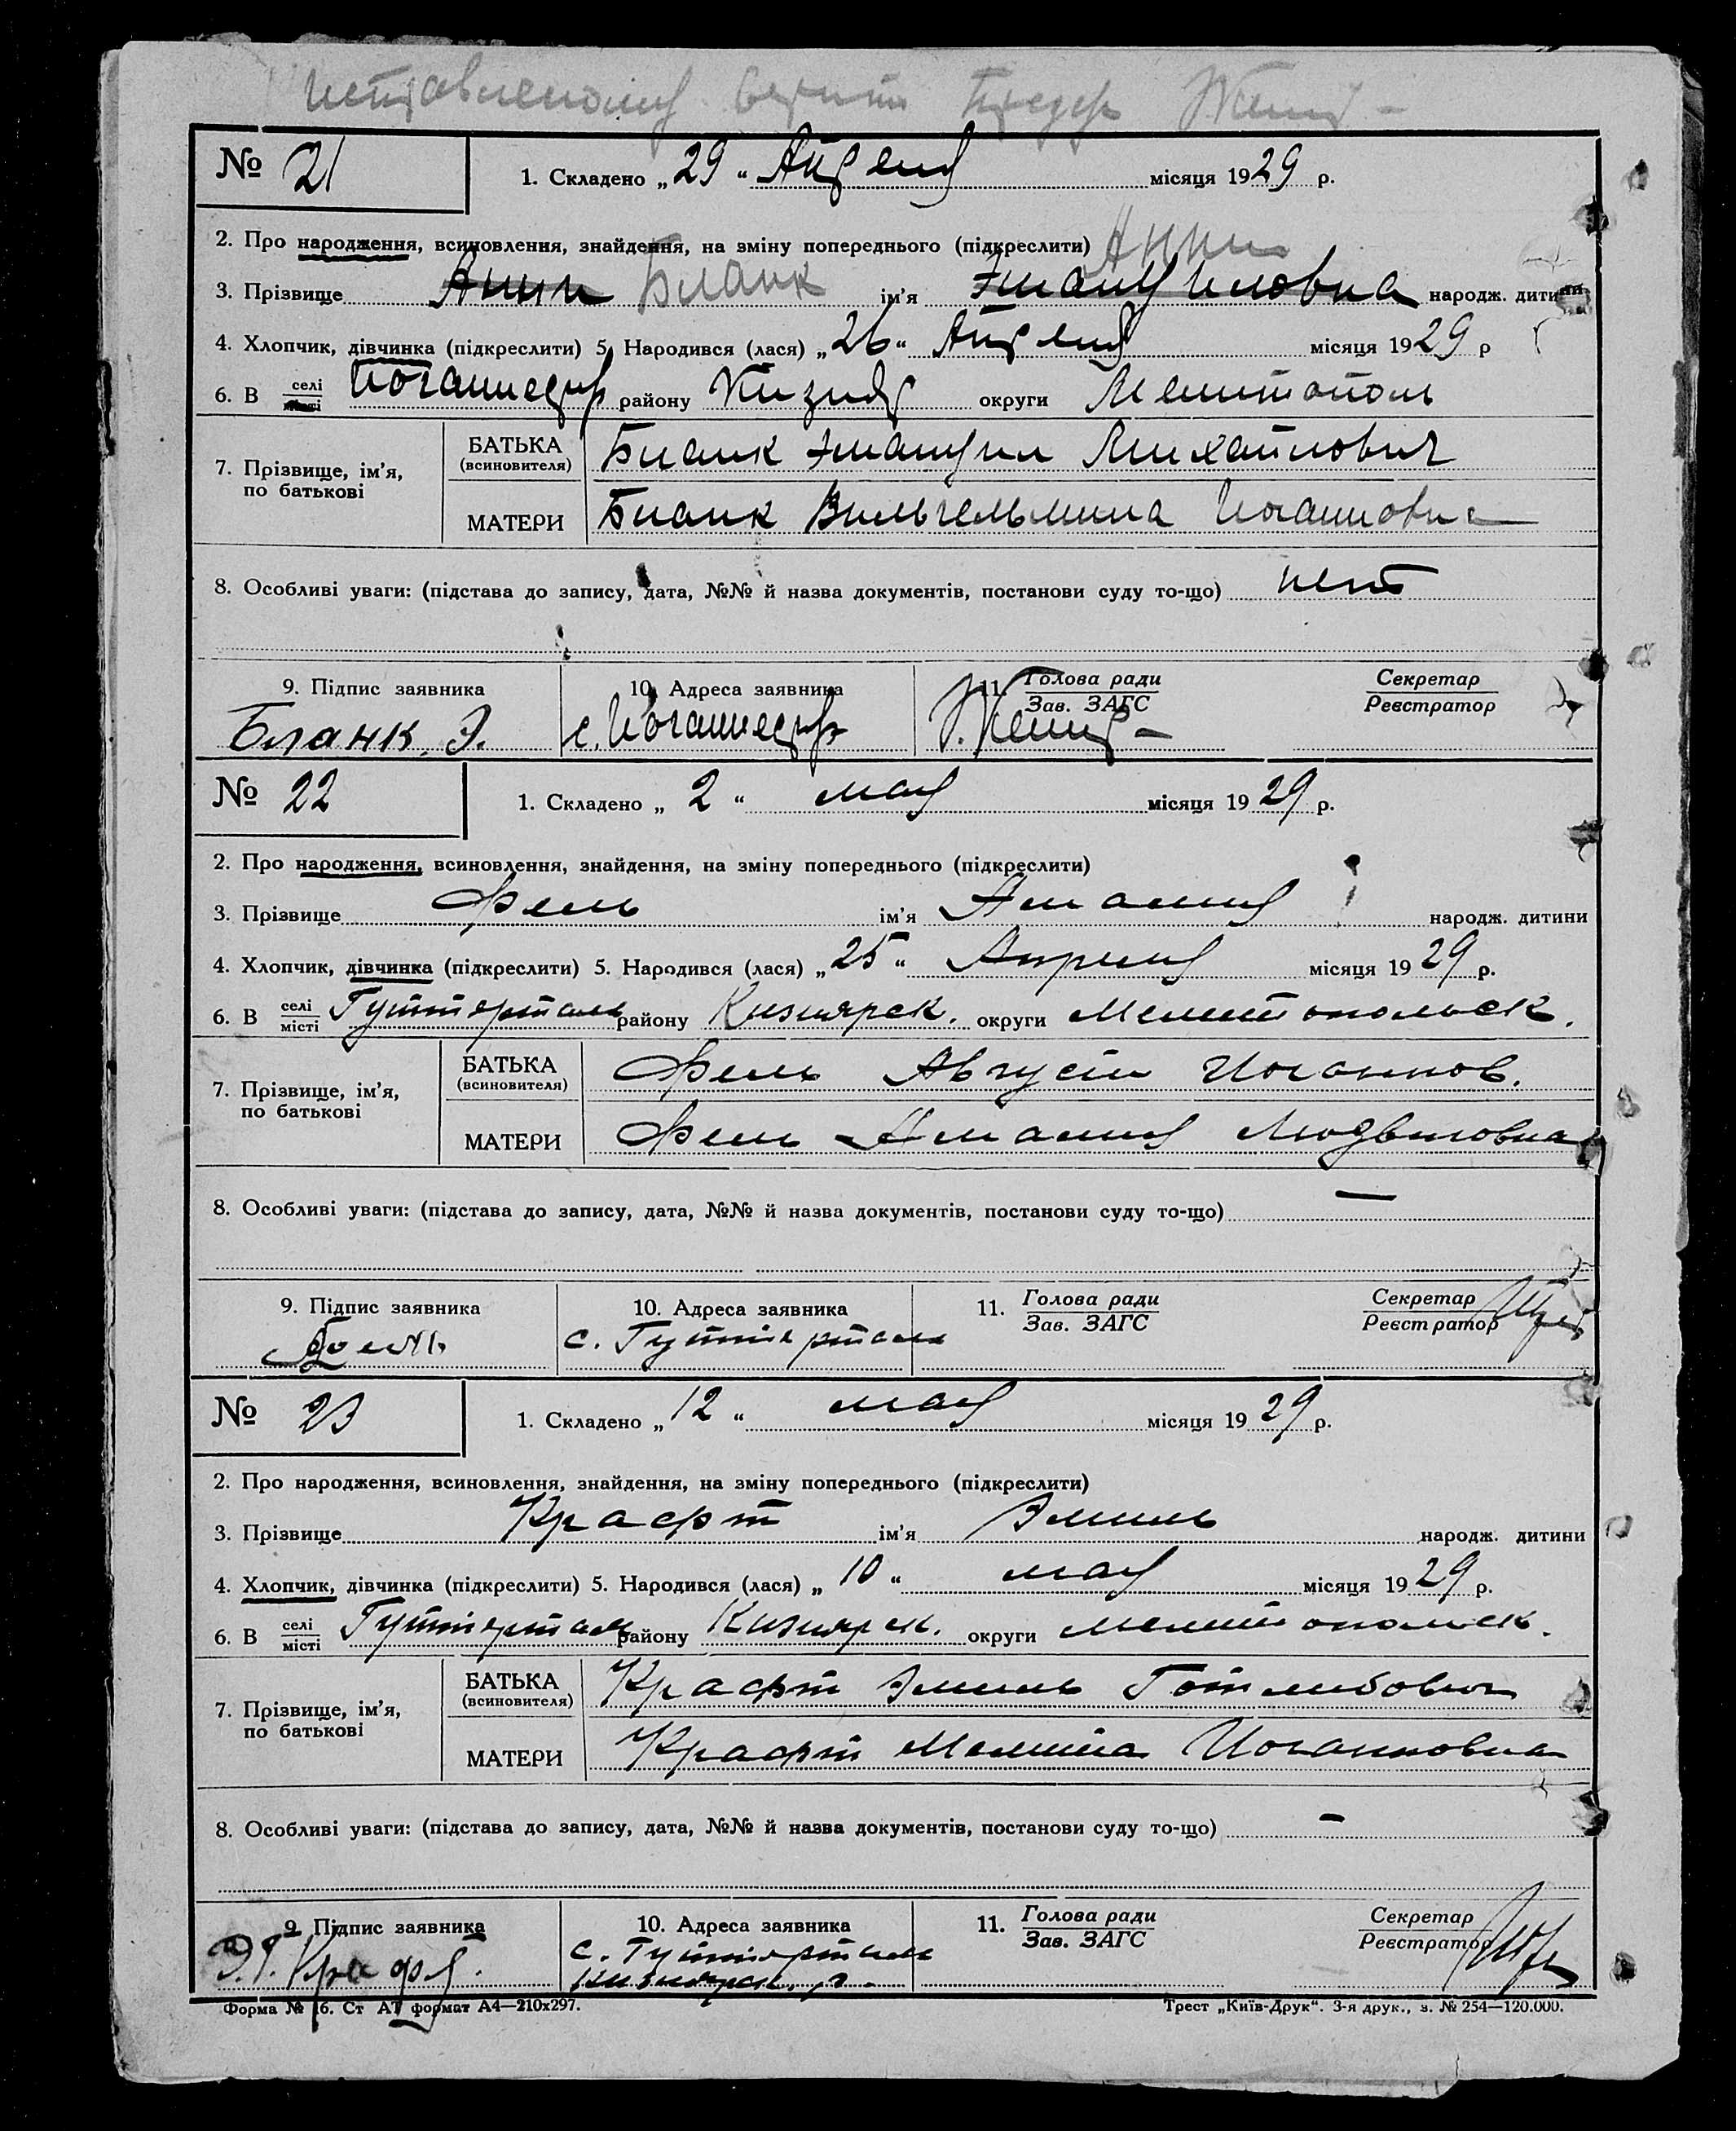 исправленому верить Предср
№ 21
1. Складено „29“ Апреля місяця 1929 р.
2. Про народження, всиновлення, знайдення, на зміну попереднього (підкреслити) Анни
3. Прізвище Анни Бланк ім'я Эмануиловна народж. дитини
4. Хлопчик, дівчинка (підкреслити) 5. Народився (лася) „26“ Апреля місяця 1929 р
6. В селі місті Иоганнесру району Кизияр округи Мелитополь
7. Прізвище, ім'я, по батькові
БАТЬКА (всиновителя) Бланк Эмануил Михайлович
МАТЕРИ Бланк Вильгельмина Иогановна
8. Особливі уваги: (підстава до запису, дата, №№ й назва документів, постанови суду то-що) нет
9. Підпис заявника 10. Адреса заявника 11. Голова ради Зав. ЗАГС Секретар Реєстратор
Бланк. Э. с. Иоганнесру
№ 22
1. Складено „2“ мая місяця 1929 р.
2. Про народження, всиновлення, знайдення, на зміну попереднього (підкреслити)
3. Прізвище Фель ім'я Амалия народж. дитини
4. Хлопчик, дівчинка (підкреслити) 5. Народився (лася) „25“ Апреля місяця 1929 р.
6. В селі місті Гуттерталь району Кизиярск. округи Мелитопольск.
7. Прізвище, ім'я, по батькові
БАТЬКА (всиновителя) Фель Август Иоганнов.
МАТЕРИ Фель Амалия Людвиговна
8. Особливі уваги: (підстава до запису, дата, №№ й назва документів, постанови суду то-що) —
9. Підпис заявника 10. Адреса заявника 11. Голова ради Зав. ЗАГС Секретар Реєстратор
Фель с. Гуттерталь
№ 23
1. Складено „12“ мая місяця 1929 р.
2. Про народження, всиновлення, знайдення, на зміну попереднього (підкреслити)
3. Прізвище Крафт ім'я Эмиль народж. дитини
4. Хлопчик, дівчинка (підкреслити) 5. Народився (лася) „10“ мая місяця 1929 р.
6. В селі місті Гуттерталь району Кизиярск. округи Мелитопольск.
7. Прізвище, ім'я, по батькові
БАТЬКА (всиновителя) Крафт Эмиль Готлибович
МАТЕРИ Крафт Мелита Иоганновна
8. Особливі уваги: (підстава до запису, дата, №№ й назва документів, постанови суду то-що) –
9. Підпис заявника 10. Адреса заявника 11. Голова ради Зав. ЗАГС Секретар Реєстратор
Э.Г. Крафт. с. Гуттерталь
Кизиярск. р.
Форма № 16. Ст АТ формат А4—210х297. Трест „Київ-Друк“. 3-я друк., з. № 254—120.000.